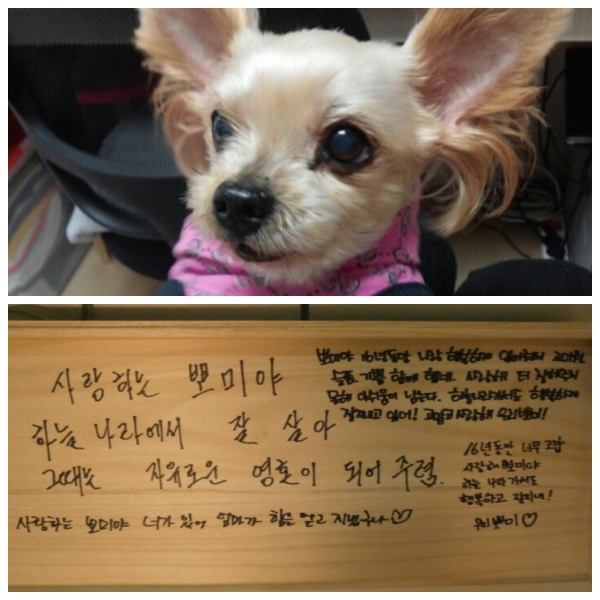 사랑하는 뽀미야
하늘 나라에서 잘 살아
그때는 자유로운 영혼이 되어 주렴.
사랑하는 뽀미야 너가 있어 엄마가 힘을 얻고 지냈구나♡
뽀미야 16년동안 나랑 행복하게 있어줘서 고마워
슬픔 기쁨 함께 했네. 사랑해 더 잘해주지
못해 아쉬움이 남는다. 하늘나라에서도 행복하게
잘지내고 있어! 고맙고 사랑해 우리뽀미!
16년동안 너무 고맙
사랑해 뽀미야
하늘 나라 가서도
행복하고 잘지내!
우리뽀미♡